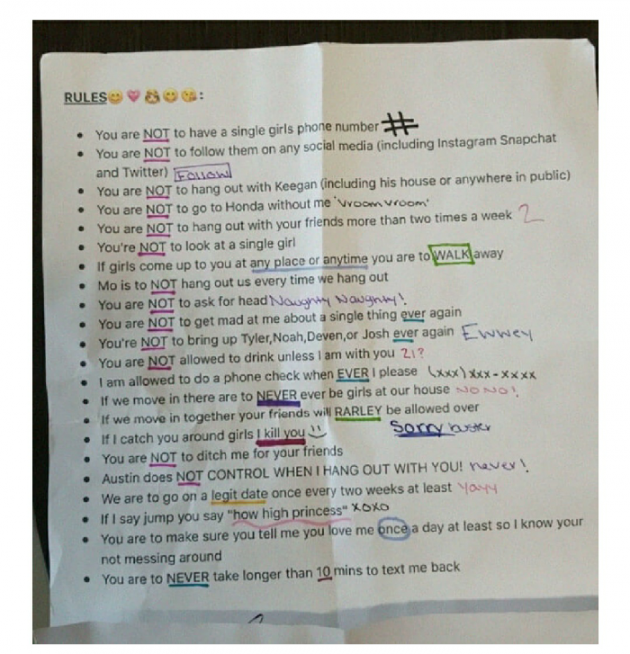 RULES😊💗🙈😋😘:
• You are NOT to have a single girls phone number #
• You are NOT to follow them on any social media (including Instagram Snapchat
and Twitter) Follow
• You are NOT to hang out with Keegan (including his house or anywhere in public)
• You are NOT to go to Honda without me 'vroom vroom'
• You are NOT to hang out with your friends more than two times a week 2
• You're NOT to look at a single girl
• If girls come up to you at any place or anytime you are to WALK away
• Mo is to NOT hang out us every time we hang out
• You are NOT to ask for head Naughty Naughty!
• You are NOT to get mad at me about a single thing ever again
• You're NOT to bring up Tyler,Noah,Deven,or Josh ever again Ewwey
• You are NOT allowed to drink unless I am with you 21?
• I am allowed to do a phone check when EVER I please (xxx) xxx-xxxx
• If we move in there are to NEVER ever be girls at our house NO NO!
• If we move in together your friends will RARLEY be allowed over
• If I catch you around girls I kill you :) Sorry buster
• You are NOT to ditch me for your friends
• Austin does NOT CONTROL WHEN I HANG OUT WITH YOU! never!
• We are to go on a legit date once every two weeks at least Yayy
• If I say jump you say "how high princess" xoxo
• You are to make sure you tell me you love me once a day at least so I know your
not messing around
• You are to NEVER take longer than 10 mins to text me back